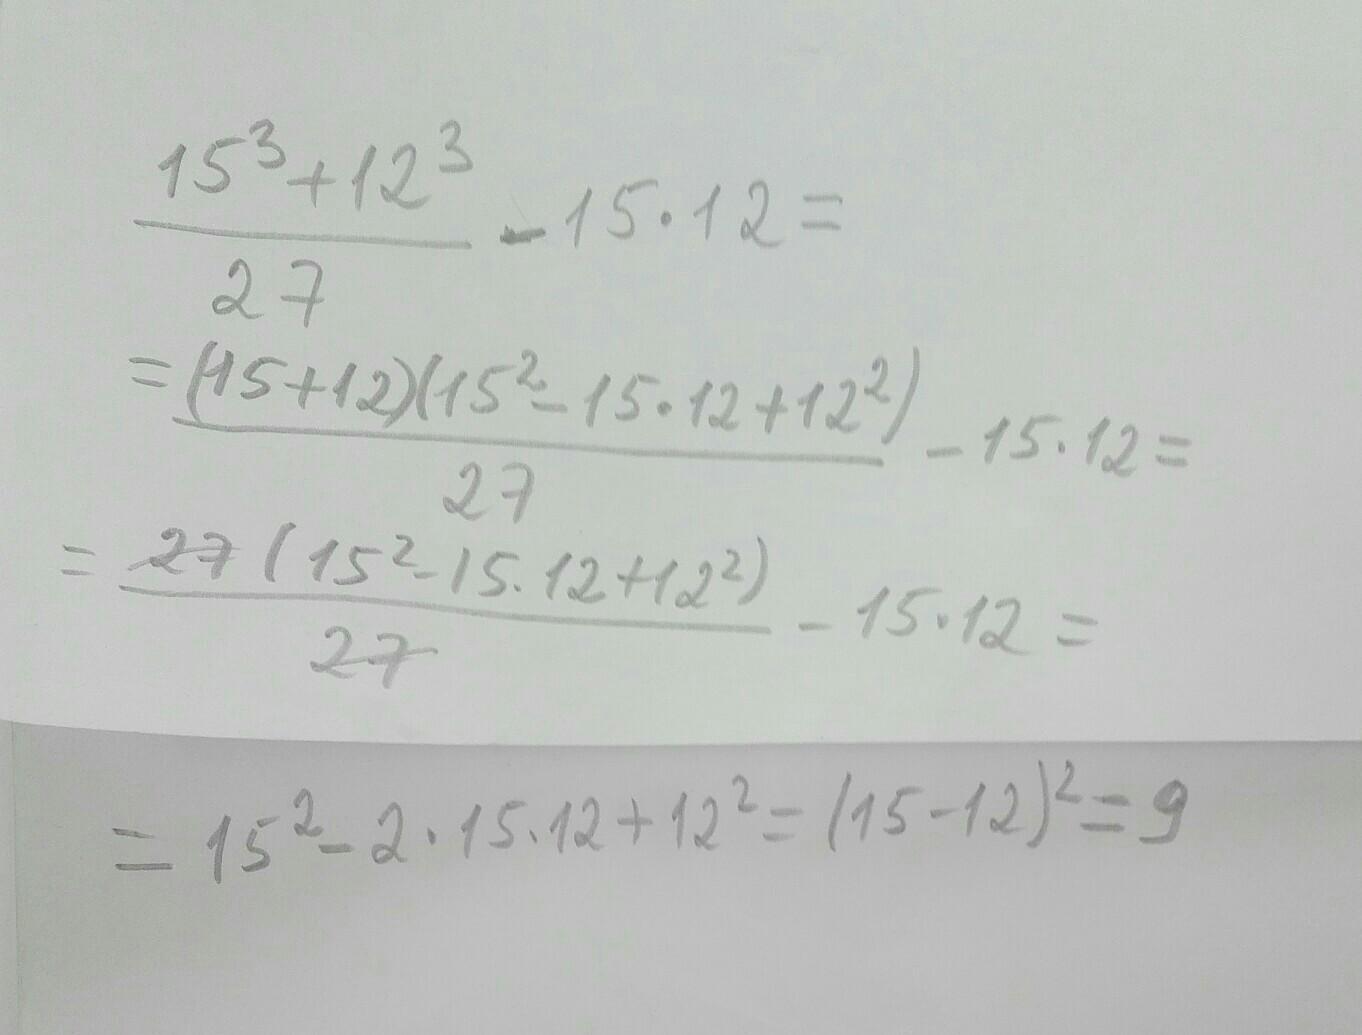 15³+12³/27 - 15·12=
=(15+12)(15²-15·12+12²)/27 - 15·12=
= 27(15²-15·12+12²)/27 - 15·12=
= 15²-2·15·12+12²=(15-12)²=9